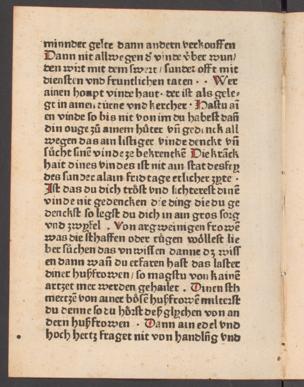 minnder gelte dann andern verkouffen
Dann nit allwegen d̓ vinde v̓ber wun/
den wirt mit dem swert / sunder offt mit
diensten vnd fruntlichen taten . . Wer
ainen houpt vinde haut · der ist als gele-
gt in ainen türne vnd kercher · Hastu ai
en vinde so bis nit von im du habest dañ
din ouge zů ainem hůter vñ gedenck all
wegen das ain listiger vinde denckt vñ
sůcht sinē vinde ze bekrencken Die kräck
hait dines vindes ist nit ain stat des frey
des sunder alain fridtage etlicher zyte ·
Ist das du dich tröst vnd sichterest dinē
vinde nit gedencken die ding die du ge
denckst so legst du dich in ain gros sorg
vnd zwyfel . Von argweinigen frowē
was die sthaffen oder tügen wöllest lie
ber sůchen das vnwissen danne dz wiss
en dann wañ du erfaren hast das laster
diner hußfrowen / so magstu von kainē
artzet mer werden gehailet . Dinen sth
mertzē von ainer bösē hußfrowē milterst
du denne so du hörst deßglychen von an
dern hußfrowen · Dann ain edel vnd
hoch hertz fraget nit von handlūg vnd